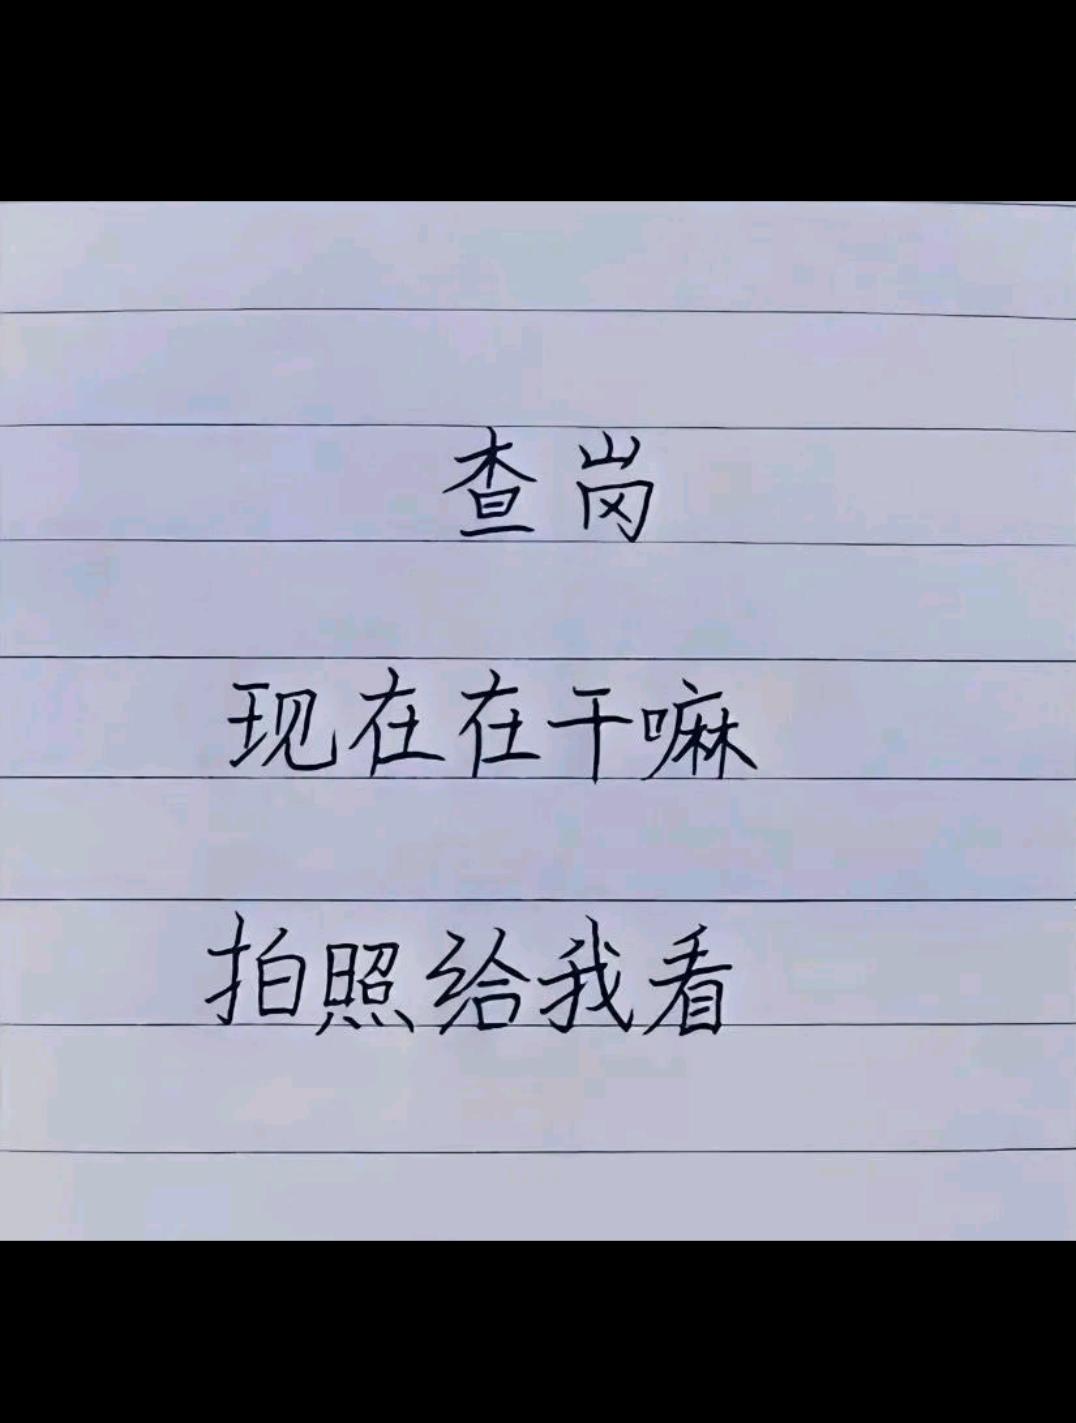 查岗
现在在干嘛
拍照给我看